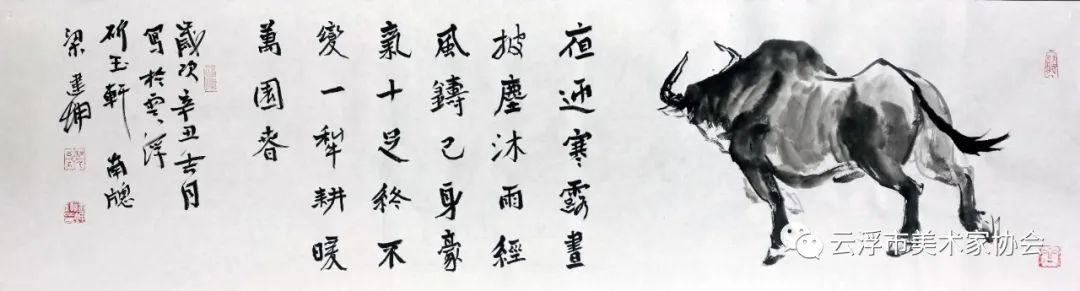 夜迎寒露晝
披塵沐雨經
風鑄己身豪
氣十足終不
變一犁耕暖
萬園春
歲次辛丑吉月
寫於雲浮
斫玉軒 南牕
梁建坤
云浮市美术家协会